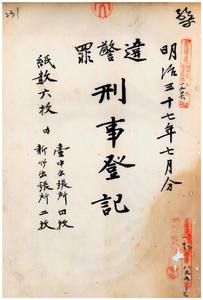 明治三十七年七月分
違警罪
刑事登記
紙数六枚 内
臺中出張所四枚
新竹出張所二枚